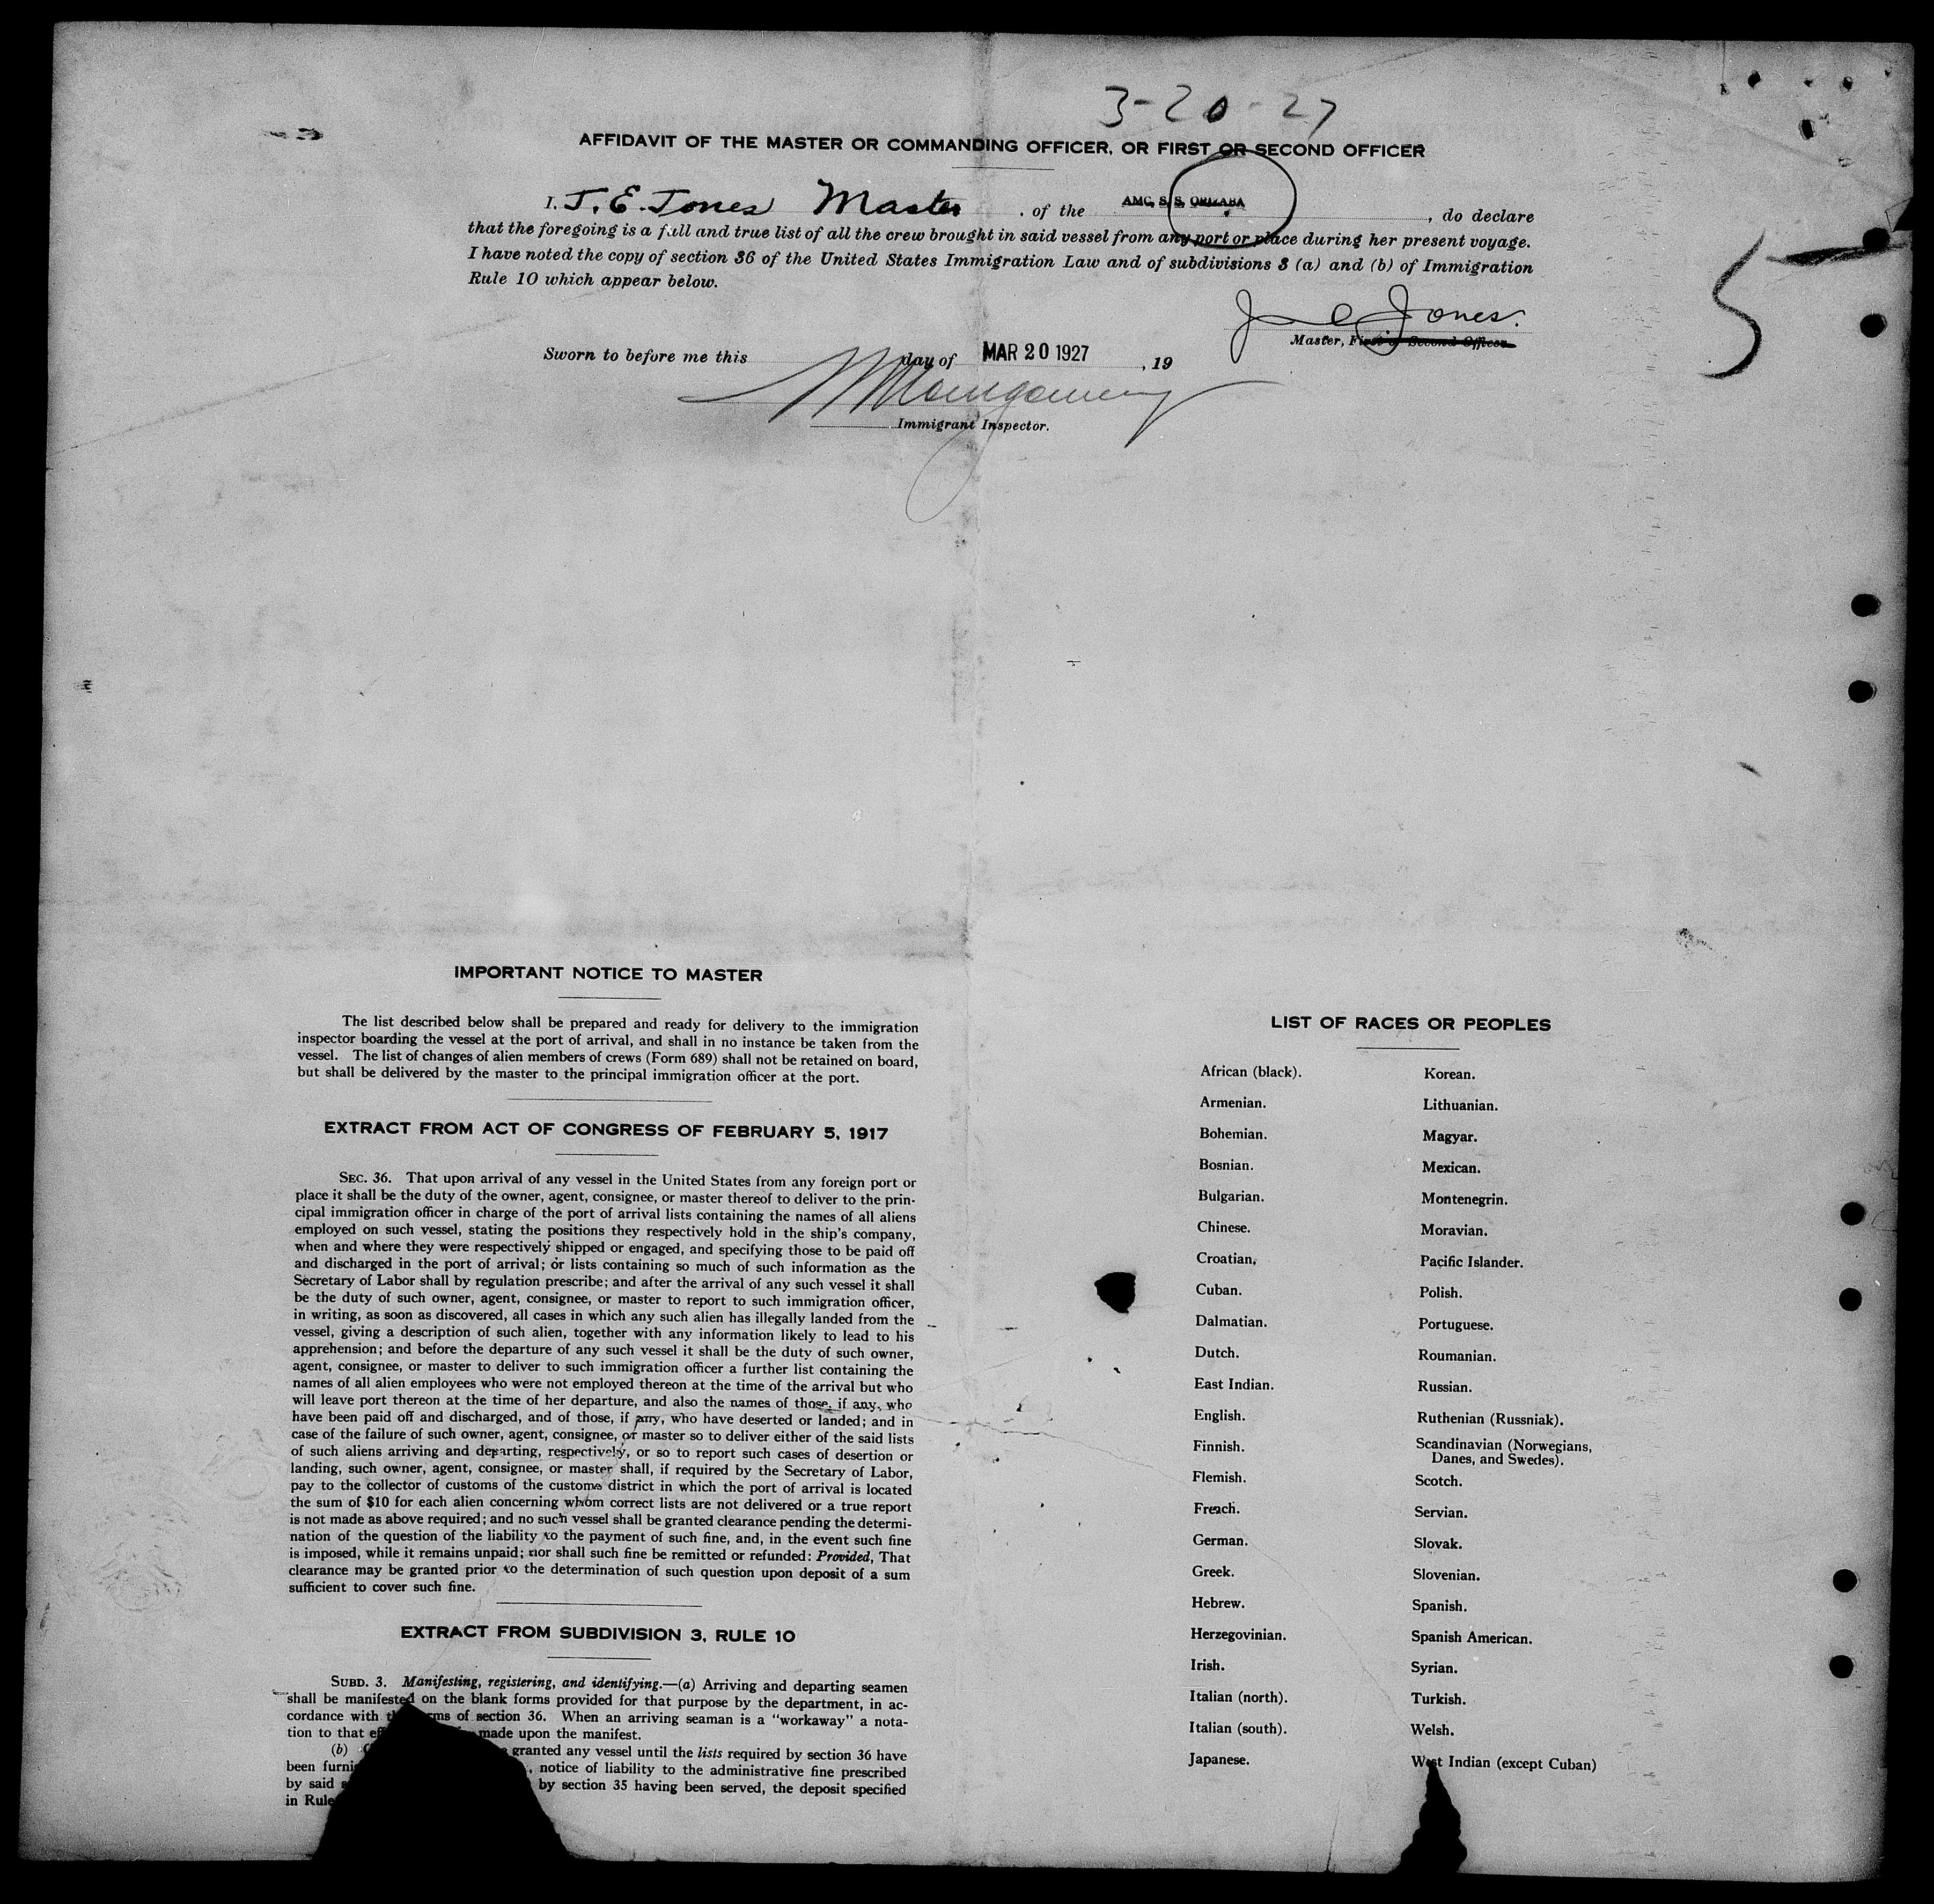 3-20-27
AFFIDAVIT OF THE MASTER OR COMMANDING OFFICER, OR FIRST OR SECOND OFFICER
I, J. E. Jones Master, of the AMC. S. S. ORIZABA, do declare
that the foregoing is a full and true list of all the crew brought in said vessel from any port or place during her present voyage.
I have noted the copy of section 36 of the United States Immigration Law and of subdivisions 3 (a) and (b) of Immigration
Rule 10 which appear below.
5
J E Jones.
Master, First or Second Officer.
Sworn to before me this day of MAR 20 1927, 19
Montgomery
Immigrant Inspector.
IMPORTANT NOTICE TO MASTER
The list described below shall be prepared and ready for delivery to the immigration
inspector boarding the vessel at the port of arrival, and shall in no instance be taken from the
vessel. The list of changes of alien members of crews (Form 689) shall not be retained on board,
but shall be delivered by the master to the principal immigration officer at the port.
EXTRACT FROM ACT OF CONGRESS OF FEBRUARY 5, 1917
SEC. 36. That upon arrival of any vessel in the United States from any foreign port or
place it shall be the duty of the owner, agent, consignee, or master thereof to deliver to the prin-
cipal immigration officer in charge of the port of arrival lists containing the names of all aliens
employed on such vessel, stating the positions they respectively hold in the ship's company,
when and where they were respectively shipped or engaged, and specifying those to be paid off
and discharged in the port of arrival; or lists containing so much of such information as the
Secretary of Labor shall by regulation prescribe; and after the arrival of any such vessel it shall
be the duty of such owner, agent, consignee, or master to report to such immigration officer,
in writing, as soon as discovered, all cases in which any such alien has illegally landed from the
vessel, giving a description of such alien, together with any information likely to lead to his
apprehension; and before the departure of any such vessel it shall be the duty of such owner,
agent, consignee, or master to deliver to such immigration officer a further list containing the
names of all alien employees who were not employed thereon at the time of the arrival but who
will leave port thereon at the time of her departure, and also the names of those, if any, who
have been paid off and discharged, and of those, if any, who have deserted or landed; and in
case of the failure of such owner, agent, consignee, or master so to deliver either of the said lists
of such aliens arriving and departing, respectively, or so to report such cases of desertion or
landing, such owner, agent, consignee, or master shall, if required by the Secretary of Labor,
pay to the collector of customs of the customs district in which the port of arrival is located
the sum of $10 for each alien concerning whom correct lists are not delivered or a true report
is not made as above required; and no such vessel shall be granted clearance pending the determi-
nation of the question of the liability to the payment of such fine, and, in the event such fine
is imposed, while it remains unpaid; nor shall such fine be remitted or refunded: Provided, That
clearance may be granted prior to the determination of such question upon deposit of a sum
sufficient to cover such fine.
EXTRACT FROM SUBDIVISION 3, RULE 10
SUBD. 3. Manifesting, registering, and identifying.—(a) Arriving and departing seamen
shall be manifested on the blank forms provided for that purpose by the department, in ac-
cordance with of section 36. When an arriving seaman is a "workaway" a nota-
tion to that made upon the manifest.
(b) granted any vessel until the lists required by section 36 have
been , notice of liability to the administrative fine prescribed
by said by section 35 having been served, the deposit specified
in Rule
LIST OF RACES OR PEOPLES
African (black).
Armenian.
Bohemian.
Bosnian.
Bulgarian.
Chinese.
Croatian.
Cuban.
Dalmatian.
Dutch.
East Indian.
English.
Finnish.
Flemish.
French.
German.
Greek.
Hebrew.
Herzegovinian.
Irish.
Italian (north).
Italian (south).
Japanese.
Korean.
Lithuanian.
Magyar.
Mexican.
Montenegrin.
Moravian.
Pacific Islander.
Polish.
Portuguese.
Roumanian.
Russian.
Ruthenian (Russniak).
Scandinavian (Norwegians,
Danes, and Swedes).
Scotch.
Servian.
Slovak.
Slovenian.
Spanish.
Spanish American.
Syrian.
Turkish.
Welsh.
West Indian (except Cuban)